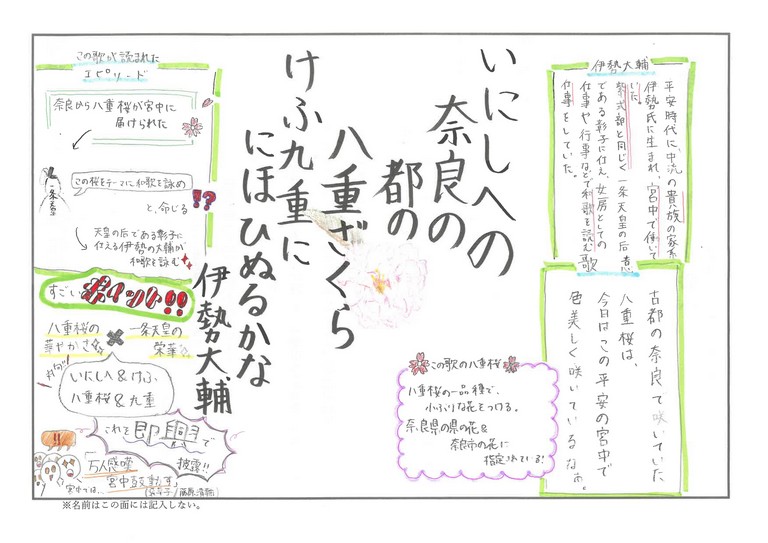 いにしへの
奈良の
都の
八重ざくら
けふ九重に
にほひぬるかな
伊勢大輔
伊勢大輔
平安時代に、中流の貴族の家系
伊勢氏に生まれ、宮中で働いて
いた。
紫式部と同じく一条天皇の后
である彰子に仕え、女房としての
仕事や行事などで和歌を読む
仕事をしていた。
歌意
古都の奈良で咲いていた
八重桜は、
今日はこの平安の宮中で
色美しく咲いているなぁ。
この歌の八重桜
八重桜の一品種で、
小ぶりな花をつける。
奈良県の県の花&
奈良市の花に
指定されている!
この歌が読まれた
エピソード
奈良から八重桜が宮中に
届けられた
一条帝
この桜をテーマに和歌を詠め
と、命じる
!?
天皇の后である彰子に
仕える伊勢の大輔が
和歌を詠む
すごいポイント!!
八重桜の
華やかさ
×
一条天皇の
栄華
対句!
いにしへ&けふ、
八重桜&九重
これを即興で
披露!!
万人感嘆
宮中鼓動す
宮中では…
※名前はこの面には記入しない。